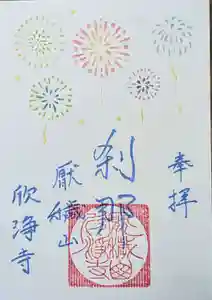 奉拝
刹那
厭穢山
欣浄寺